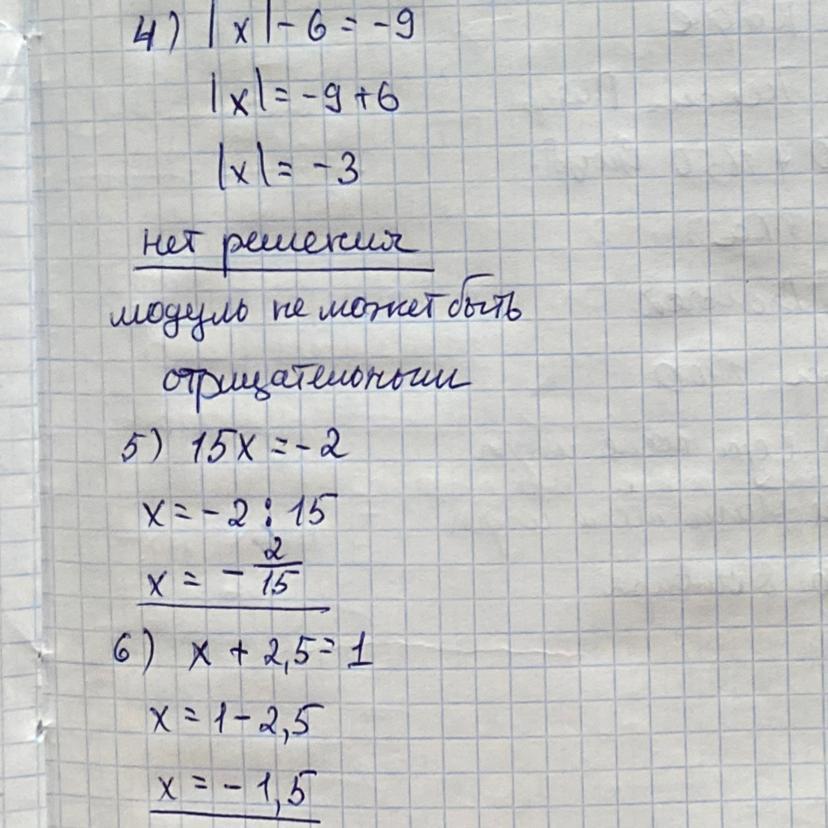 4) |x| - 6 = -9
|x| = -9 + 6
|x| = -3
нет решения
модуль не может быть
отрицательным
5) 15x = -2
x = -2 : 15
x = - 2/15
6) x + 2,5 = 1
x = 1 - 2,5
x = -1,5